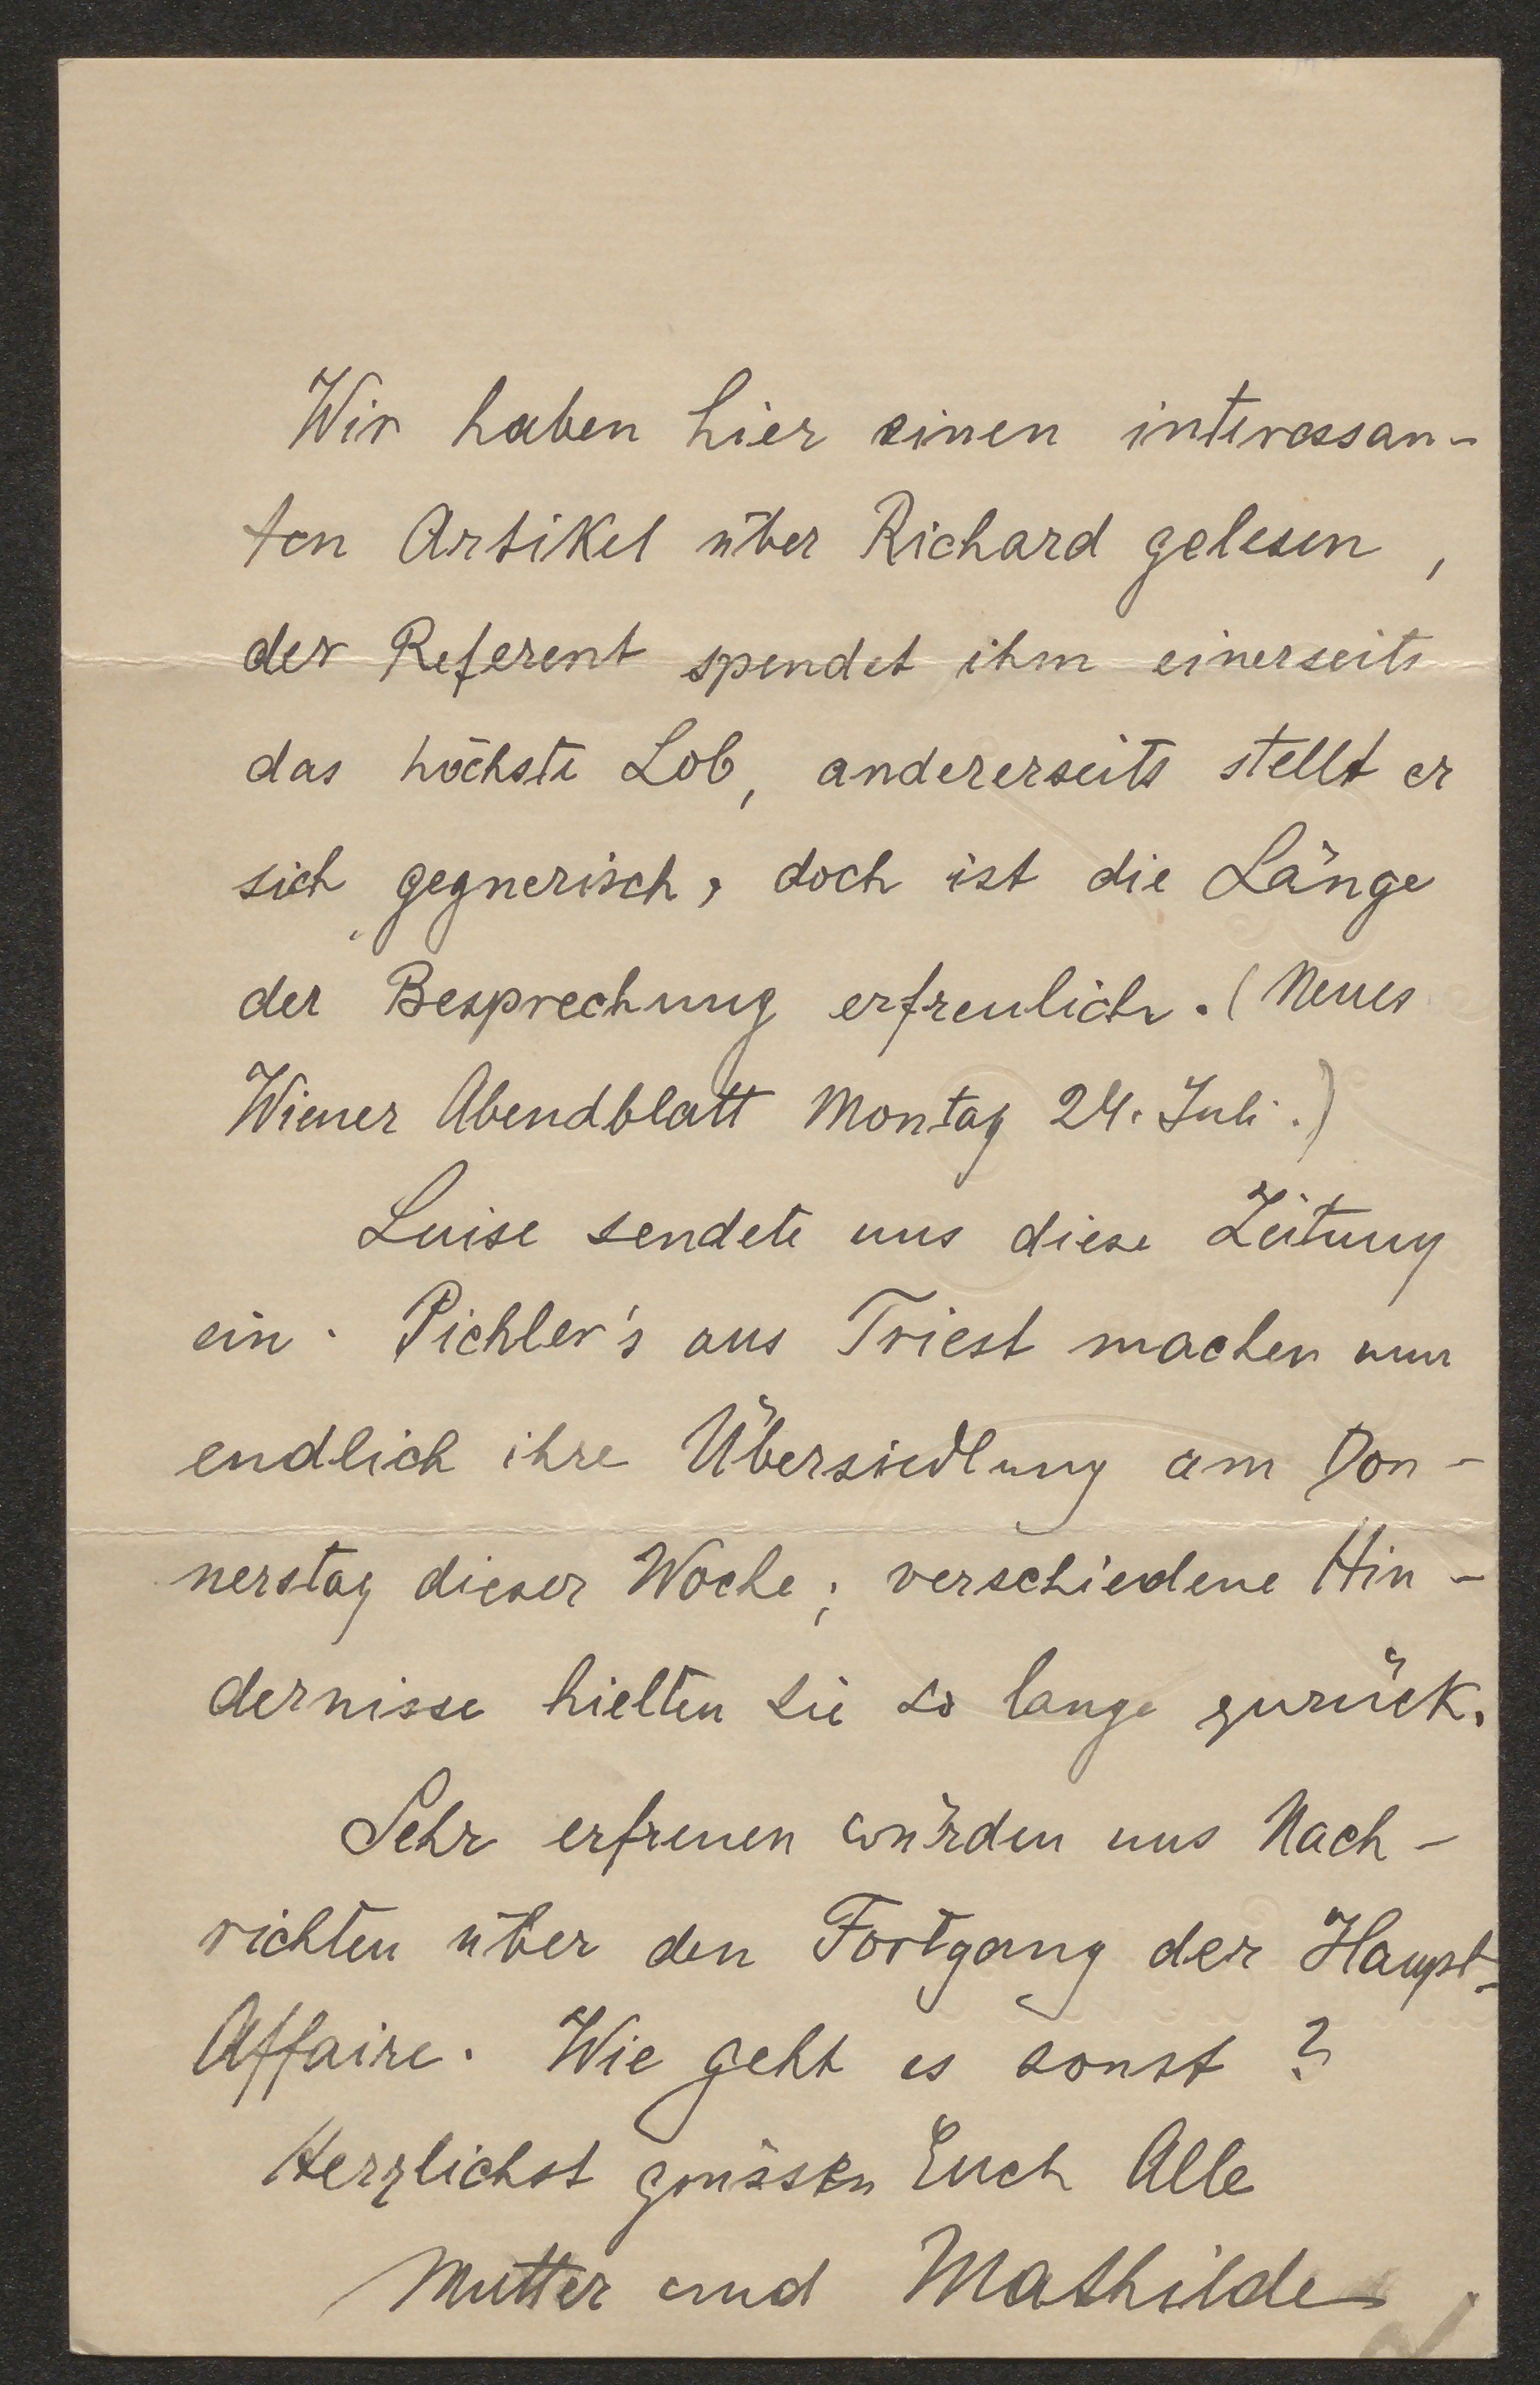 Wir haben hier einen interessan-
ten Artikel über Richard gelesen,
der Referent spendet ihm einerseits
das höchste Lob, andererseits stellt er
sich gegnerisch, doch ist die Länge
der Besprechung erfreulich. (Neues
Wiener Abendblatt Montag 24. Juli.)
Luise sendete uns diese Zeitung
ein. Pichler's aus Triest machen nun
endlich ihre Übersiedlung am Don-
nerstag dieser Woche; verschiedene Hin-
dernisse hielten sie so lange zurück.
Sehr erfreuen würden uns Nach-
richten über den Fortgang der Haupt-
Affaire. Wie geht es sonst?
Herzlichst grüssen Euch Alle
Mutter und Mathilde